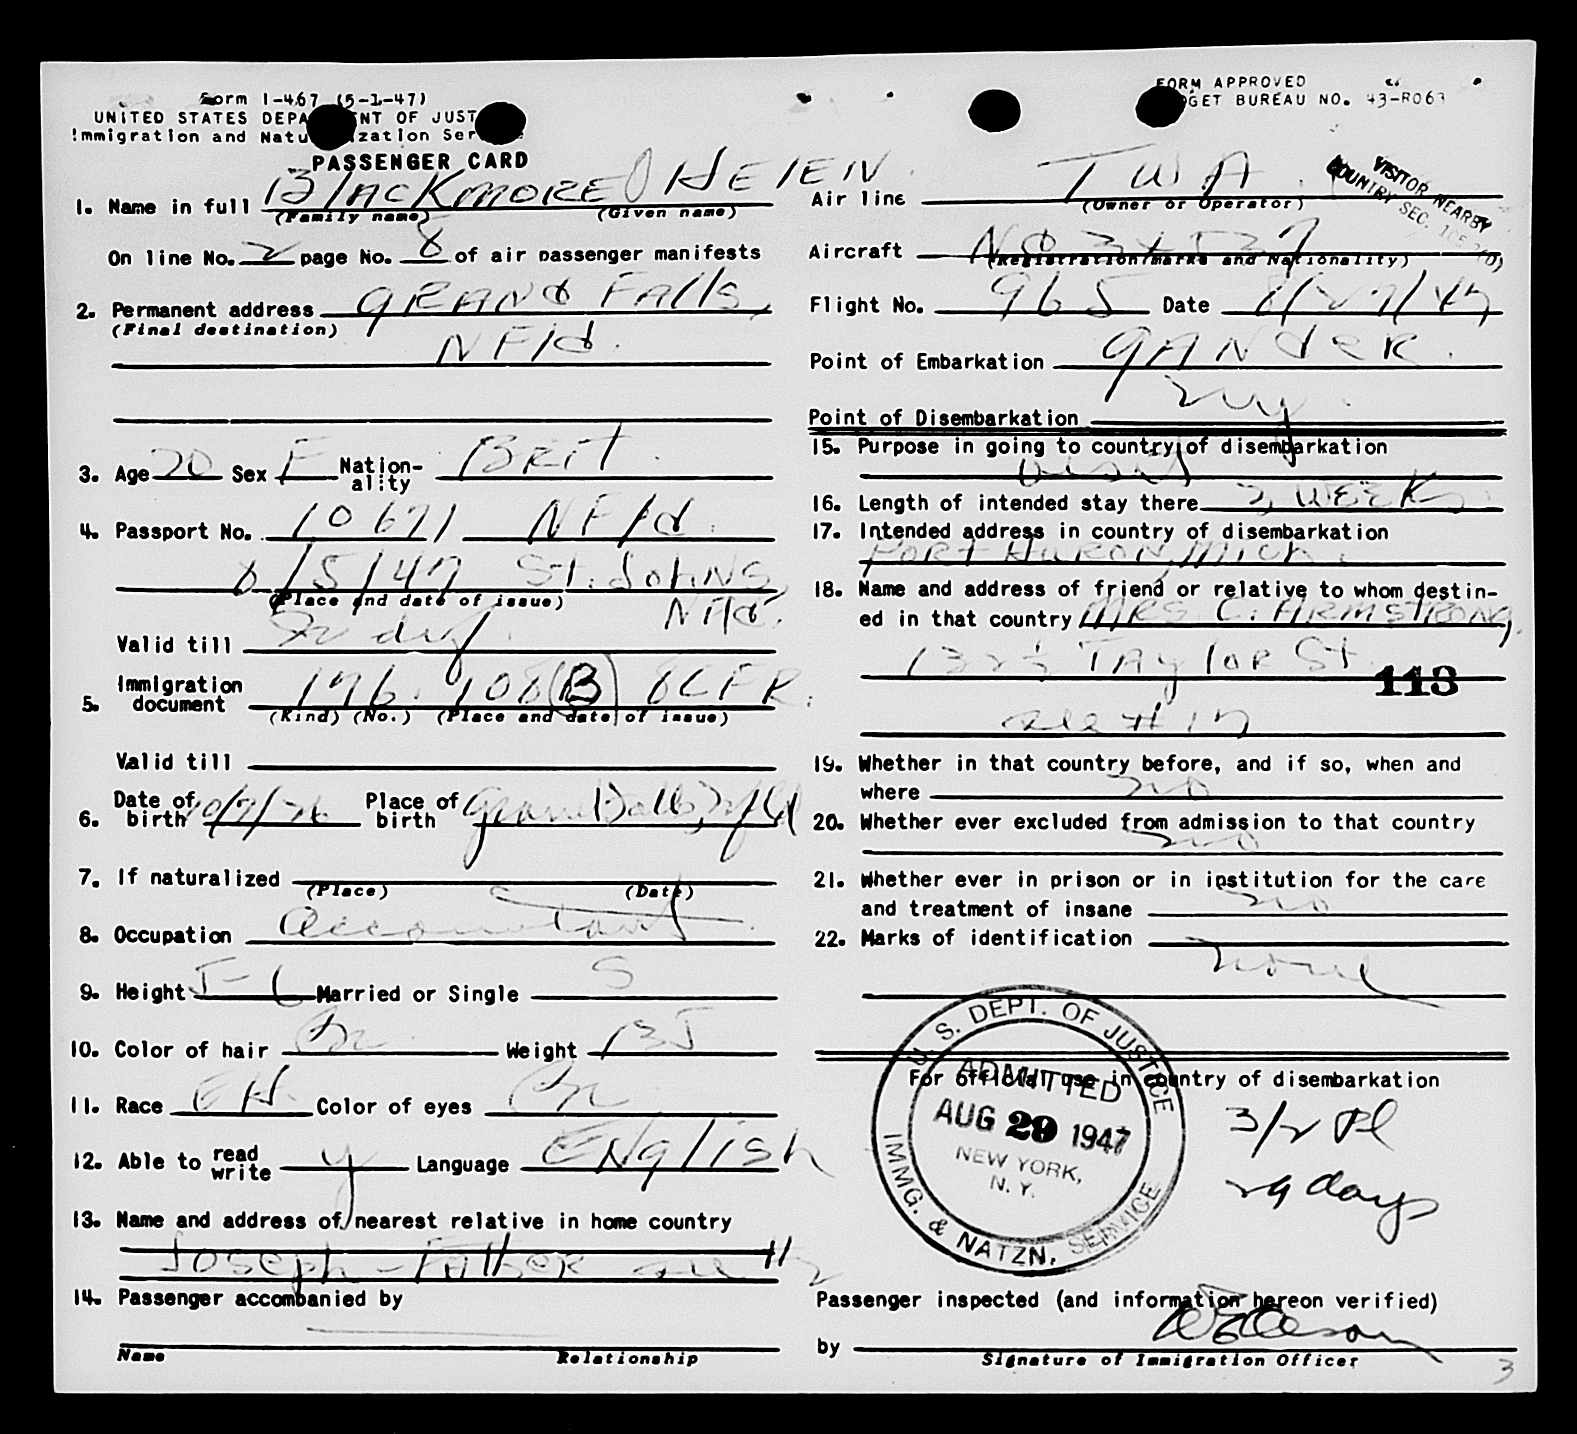 Form I-467 (5-1-47)
UNITED STATES DEPA NT OF JUST
Immigration and Natu ization Ser
PASSENGER CARD
1. Name in full BlAcKmORE HElEN
(Family name) (Given name)
On line No. 2 page No. 8 of air passenger manifests
2. Permanent address GRANd FAlls,
(Final destination)
NFld.
3. Age 20 Sex F Nation-ality BRIT.
4. Passport No. 10671 NFld.
8/5/47 St. JohNs,
(Place and date of issue)
Nfld.
Valid till
5. Immigration document 176.108(B) 8CFR.
(Kind) (No.) (Place and date of issue)
Valid till
6. Date of birth 10/7/26 Place of birth Grand Falls, Nfld
7. If naturalized
(Place) (Date)
8. Occupation Accountant
9. Height 5-6 Married or Single S
10. Color of hair Br Weight 135
11. Race EH. Color of eyes Br
12. Able to read write y Language ENglish
13. Name and address of nearest relative in home country
Joseph - FatheR see #2
14. Passenger accompanied by
Name Relationship
FORM APPROVED
GET BUREAU NO. 43-R063
VISITOR NEARBY
COUNTRY SEC.
Air line TWA
(Owner or Operator)
Aircraft
(Registration marks and Nationality)
Flight No. 965 Date 8/29/47
Point of Embarkation GANdeR.
Point of Disembarkation NY.
15. Purpose in going to country of disembarkation
visit
16. Length of intended stay there 3 WEEKs
17. Intended address in country of disembarkation
PORT HURON, MIch.
18. Name and address of friend or relative to whom destin-
ed in that country MRS C. ARMSTRONG,
TAylOR St.
113
see #17
19. Whether in that country before, and if so, when and
where no
20. Whether ever excluded from admission to that country
no
21. Whether ever in prison or in institution for the care
and treatment of insane no
22. Marks of identification
none
For official use in country of disembarkation
U. S. DEPT. OF JUSTICE
ADMITTED
AUG 29 1947
NEW YORK,
N. Y.
IMMG. & NATZN. SERVICE
3/2 Pl
29 days
Passenger inspected (and information hereon verified)
by
Signature of Immigration Officer
3